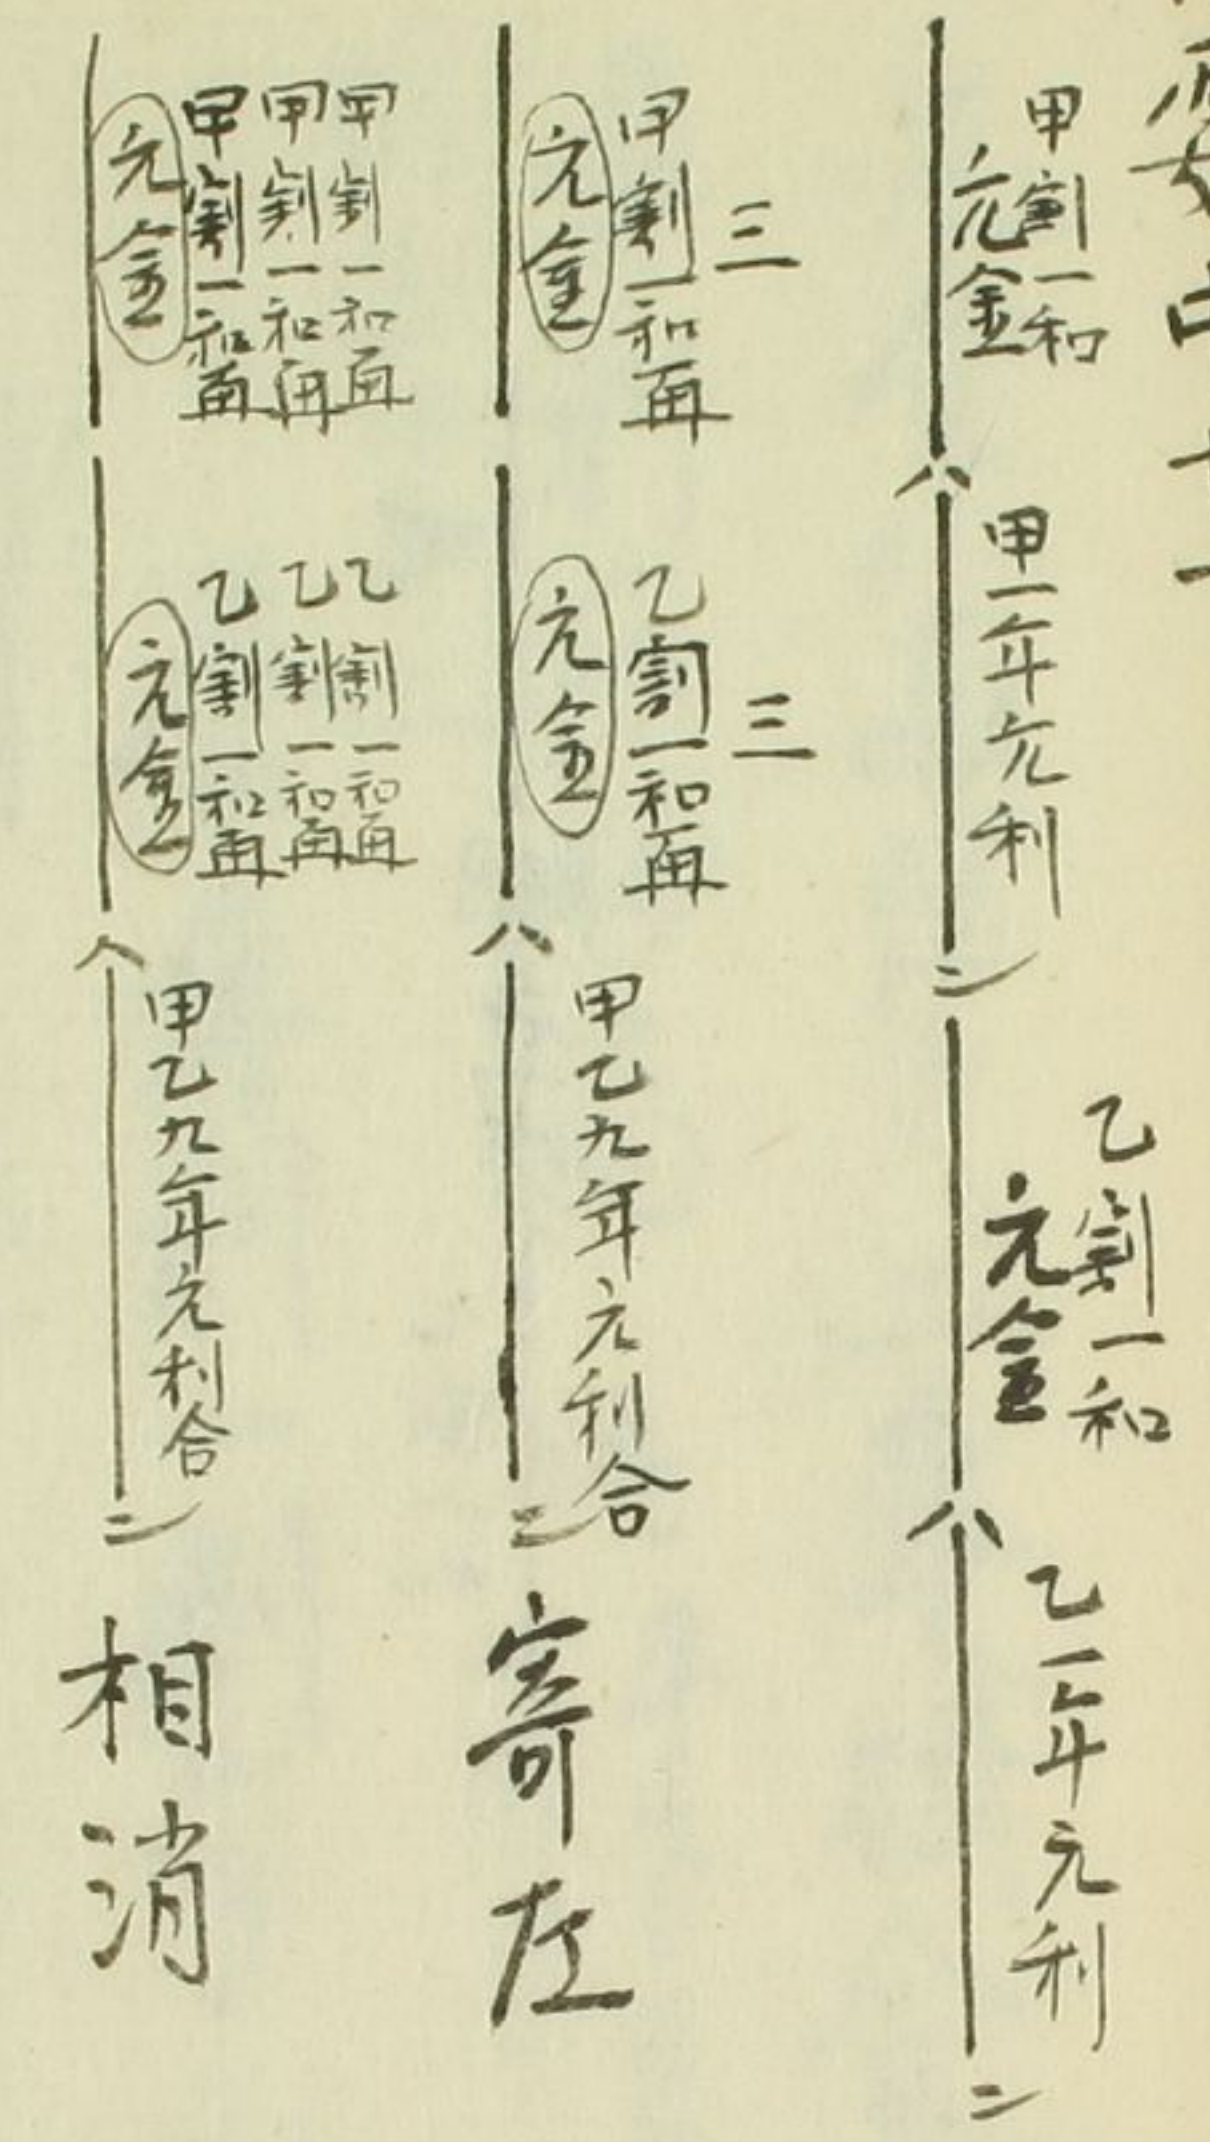 甲割一和
元金
八
甲一年元利
ニ
乙割一和
元金
八
乙一年元利
ニ
三
甲割一和再
元金
三
乙割一和再
元金
八
甲乙九年元利合
ニ
寄左
甲割一和再
甲割一和再
甲割一和再
元金
乙割一和再
乙割一和再
乙割一和再
元金
八
甲乙九年元利合
ニ
相消